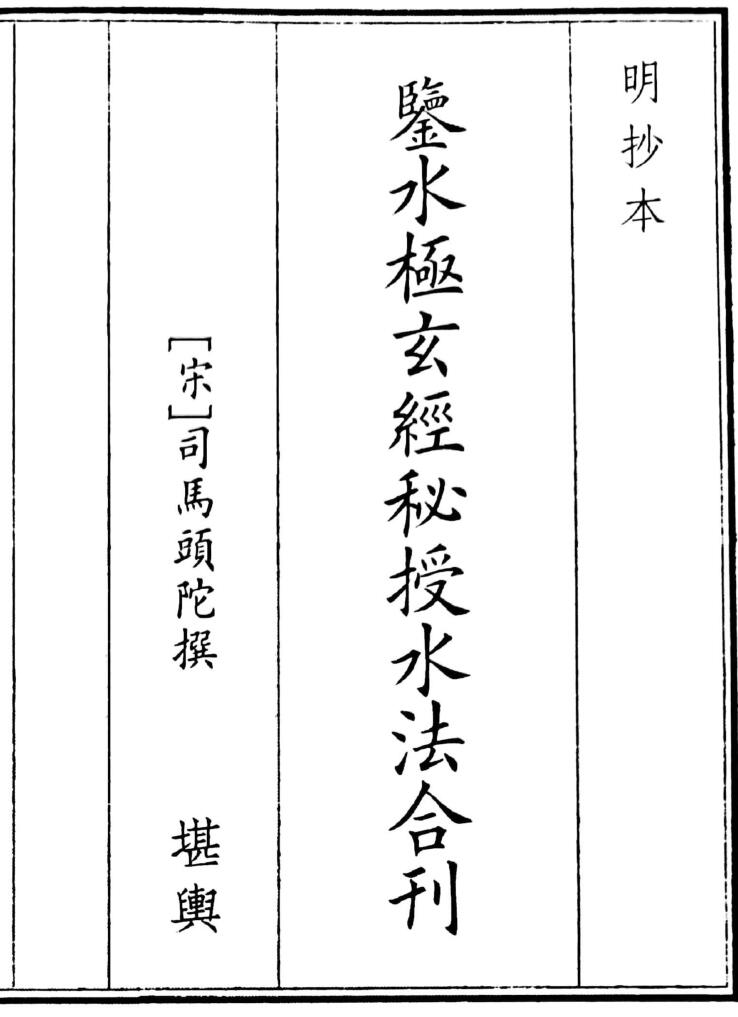 明抄本
鑒水極玄經秘授水法合刊
［宋］司馬頭陀撰　堪輿